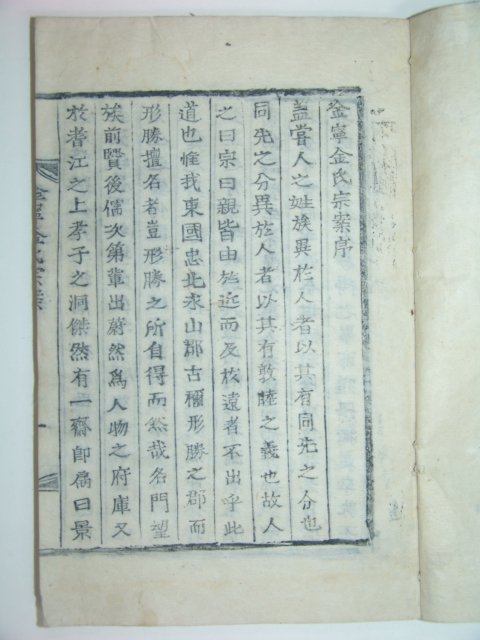 金寧金氏宗案序
盖嘗人之姓族異於人者以其有同先之分也
同先之分異於人者以其有敦睦之義也故人
之曰宗曰親皆由於近而及於遠者不出乎此
道也惟我東國忠北永山郡古稱形勝之郡而
形勝擅名者豈形勝之所自得而然哉名門望
族前賢後儒次第輩出蔚然爲人物之府庫又
於耆江之上孝子之洞傑然有一齋卽扁曰景
金寧金氏宗案